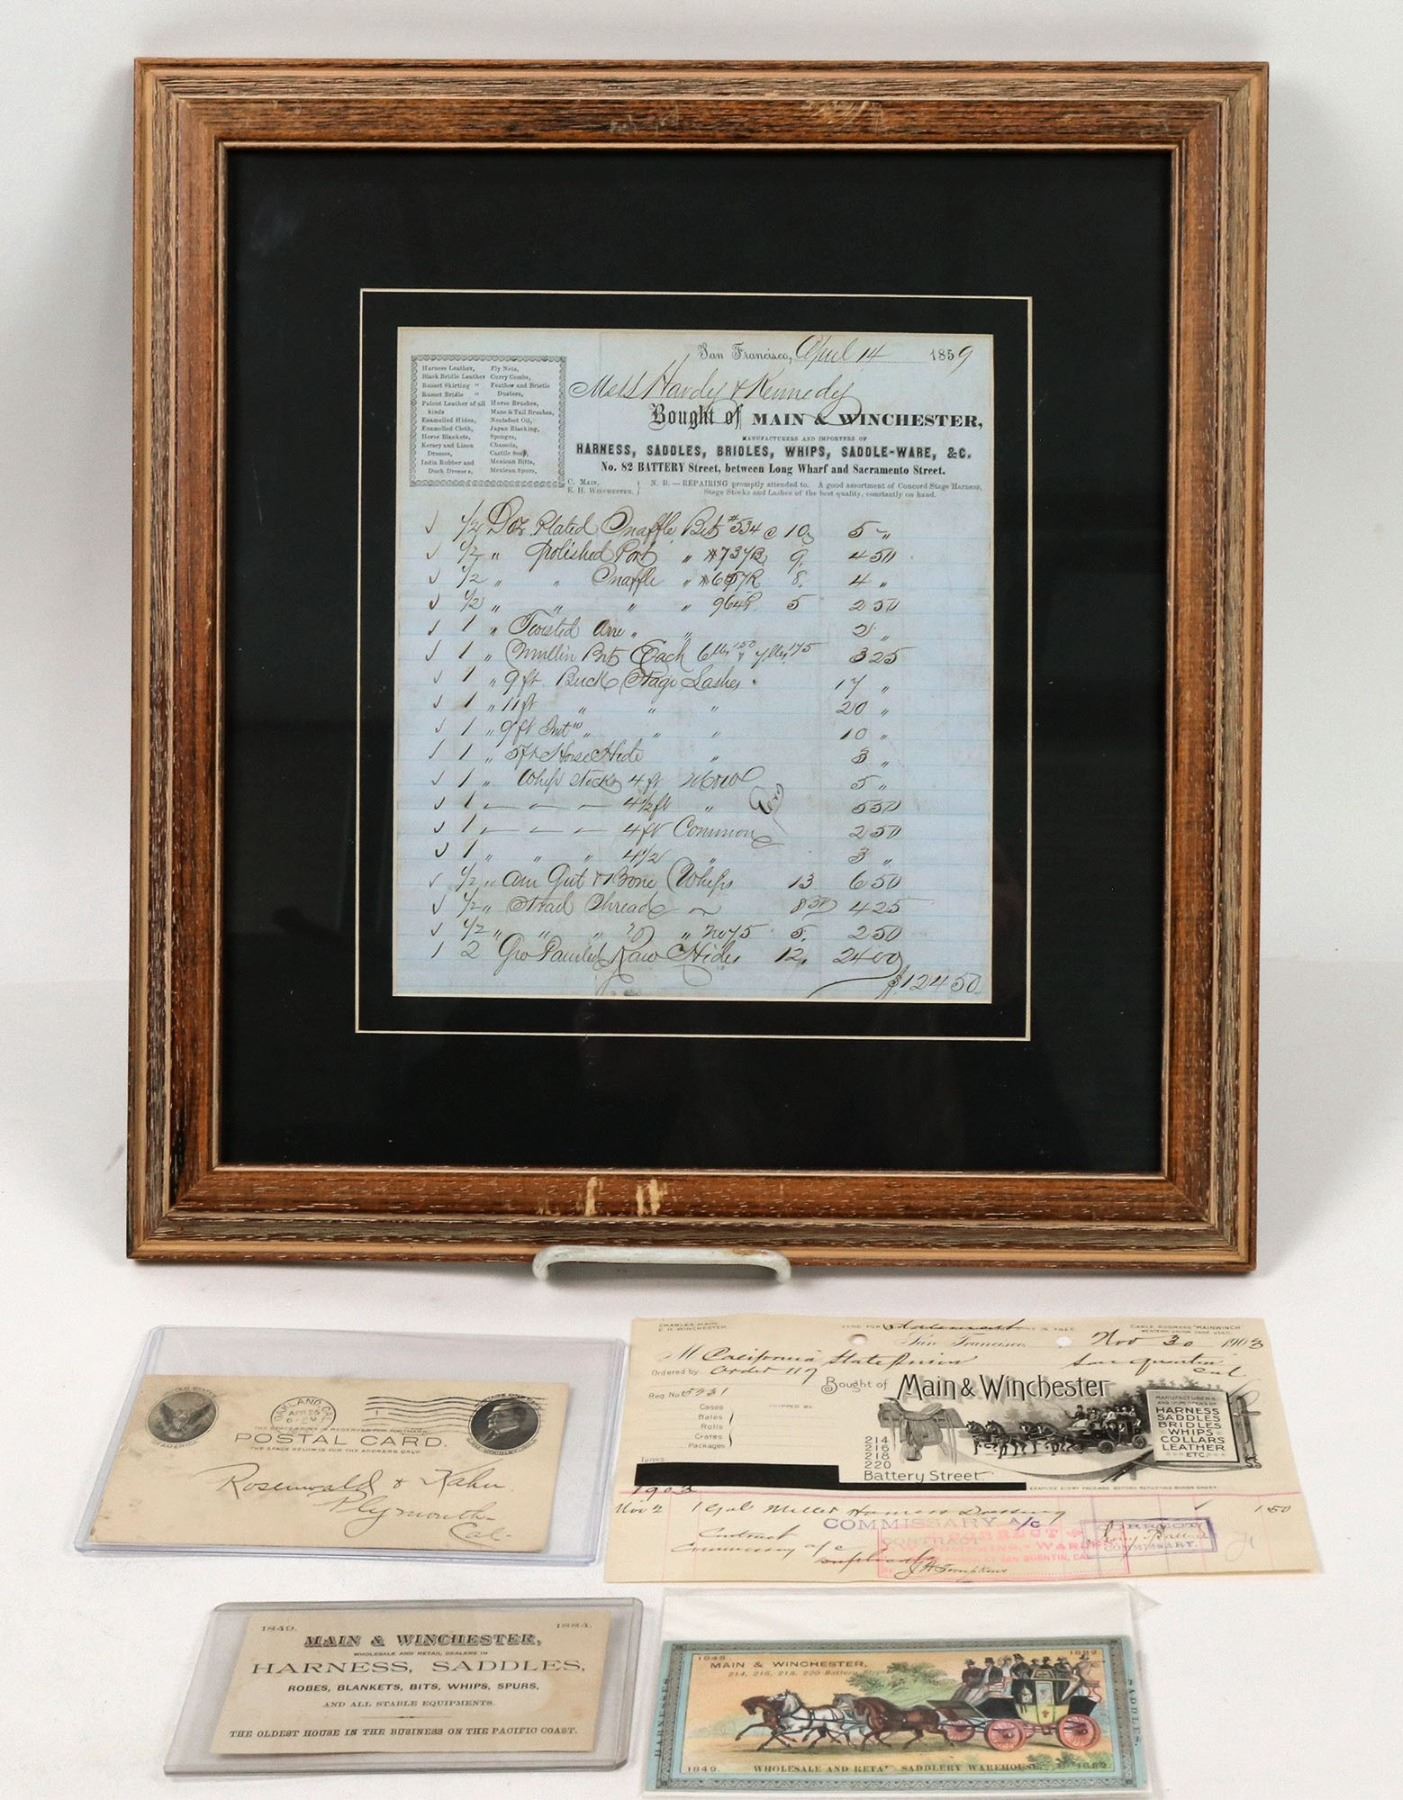 San Francisco, April 14 1859
Mess Hardy & Kennedy
Bought of MAIN & WINCHESTER,
MANUFACTURERS AND IMPORTERS OF
HARNESS, SADDLES, BRIDLES, WHIPS, SADDLE-WARE, &C.
No. 82 BATTERY Street, between Long Wharf and Sacramento Street.
C. MAIN,
E. H. WINCHESTER.
N. B. — REPAIRING promptly attended to. A good assortment of Concord Stage Harness,
Stage Stocks and Lashes of the best quality, constantly on hand.
Harness Leather,
Black Bridle Leather
Russet Skirting "
Russet Bridle "
Patent Leather of all
kinds
Enamelled Hides,
Enamelled Cloth,
Horse Blankets,
Kersey and Linen
Dresses,
India Rubber and
Duck Dresses,
Fly Nets,
Curry Combs,
Feather and Bristle
Dusters,
Horse Brushes,
Mane & Tail Brushes,
Neatsfoot Oil,
Japan Blacking,
Sponges,
Chamois,
Castile Soap,
Mexican Bitts,
Mexican Spurs,
1/2 Doz Plated Snaffle Bits #534 @ 10 5 "
1/2 " polished Port " #737B 9. 4 50
1/2 " " Snaffle " 8. 4 "
1/2 " " " " 5 2 50
1 " Twisted " " 2 "
1 " Mullin Bits Each 3 25
1 " 9 ft Buck Stage Lashes 17 "
1 " 11 ft " " " 20 "
1 " 9 ft " " 10 "
1 " 5 ft Horse Hide " 3 "
1 " Whip Stocks 4 ft 5 "
1 — — — 4½ ft " 5 50
1 — — — 4 ft Common 2 50
1 " " " 4 1/2 " 3 "
1/2 " Gut & Bone Whips 13 6 50
1/2 " Thread 8 50 4 25
1/2 " " " " 5. 2 50
2 Raw Hides 12. 24 00
$124 50
POSTAL CARD.
THE SPACE BELOW IS FOR THE ADDRESS ONLY.
OAKLAND, CAL.
Rosenwald & Kahn
Plymouth
Cal-
CHARLES MAIN
E. H. WINCHESTER
CABLE ADDRESS "MAINWINCH"
San Francisco, Nov 30 1903
M California State Prison
San Quentin
Cal
Ordered by Order 117
Reg No 5931
Bought of Main & Winchester
Cases
Bales
Rolls
Crates
Packages
SHIPPED BY
214
216
218
220
Battery Street
MANUFACTURERS
AND IMPORTERS OF
HARNESS
SADDLES
BRIDLES
WHIPS
COLLARS
LEATHER
ETC.
Terms
EXAMINE EVERY PACKAGE BEFORE RECEIVING
1903
Nov 2 1 Gal Miller Harness Dressing 1 50
Contract
Commissary a/c
COMMISSARY A/C
CONTRACT
CORRECT
SAN QUENTIN, CAL.
CORRECT
COMMISSARY.
1849. 1884.
MAIN & WINCHESTER,
WHOLESALE AND RETAIL DEALERS IN
HARNESS, SADDLES,
ROBES, BLANKETS, BITS, WHIPS, SPURS,
AND ALL STABLE EQUIPMENTS.
THE OLDEST HOUSE IN THE BUSINESS ON THE PACIFIC COAST.
1882
MAIN & WINCHESTER,
214, 216, 218, 220 Battery
HARNESSES
SADDLES.
1849
WHOLESALE AND RETAIL SADDLERY WAREHOUSE
1882